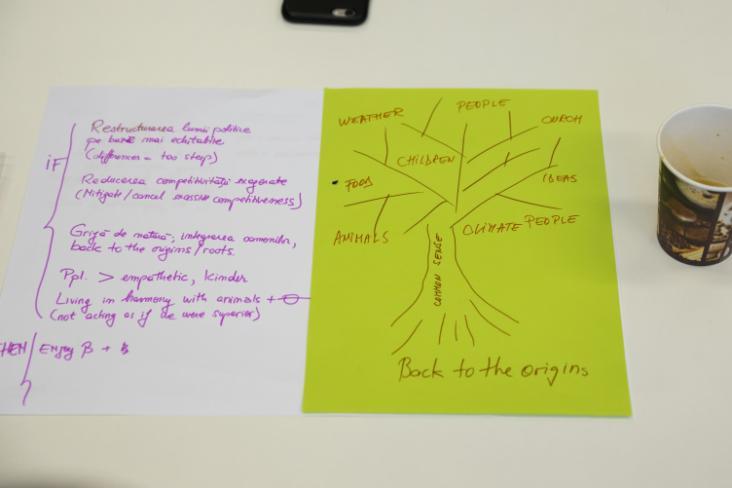 IF
Restructurarea lumii politice
pe baze mai echitabile
(differences too steep)
Reducerea competitivității exagerate
(Mitigate/cancel excessive competitiveness)
Grijă de natură, integrarea oamenilor,
back to the origins/roots.
Ppl. > empathetic, kinder
Living in harmony with animals +
(not acting as if we were superior)
THEN
Enjoy
WEATHER
PEOPLE
CHILDREN
FOOD
IDEAS
ANIMALS
CLIMATE PEOPLE
COMMON SENSE
Back to the origins